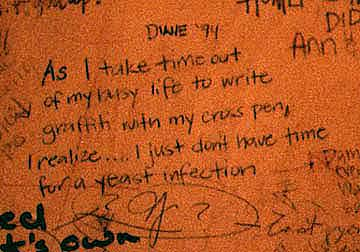 DWE '94
DIP
Ann
As I take time out
of my busy life to write
graffiti with my cross pen,
I realize.... I just don't have time
for a yeast infection
eed
t's own